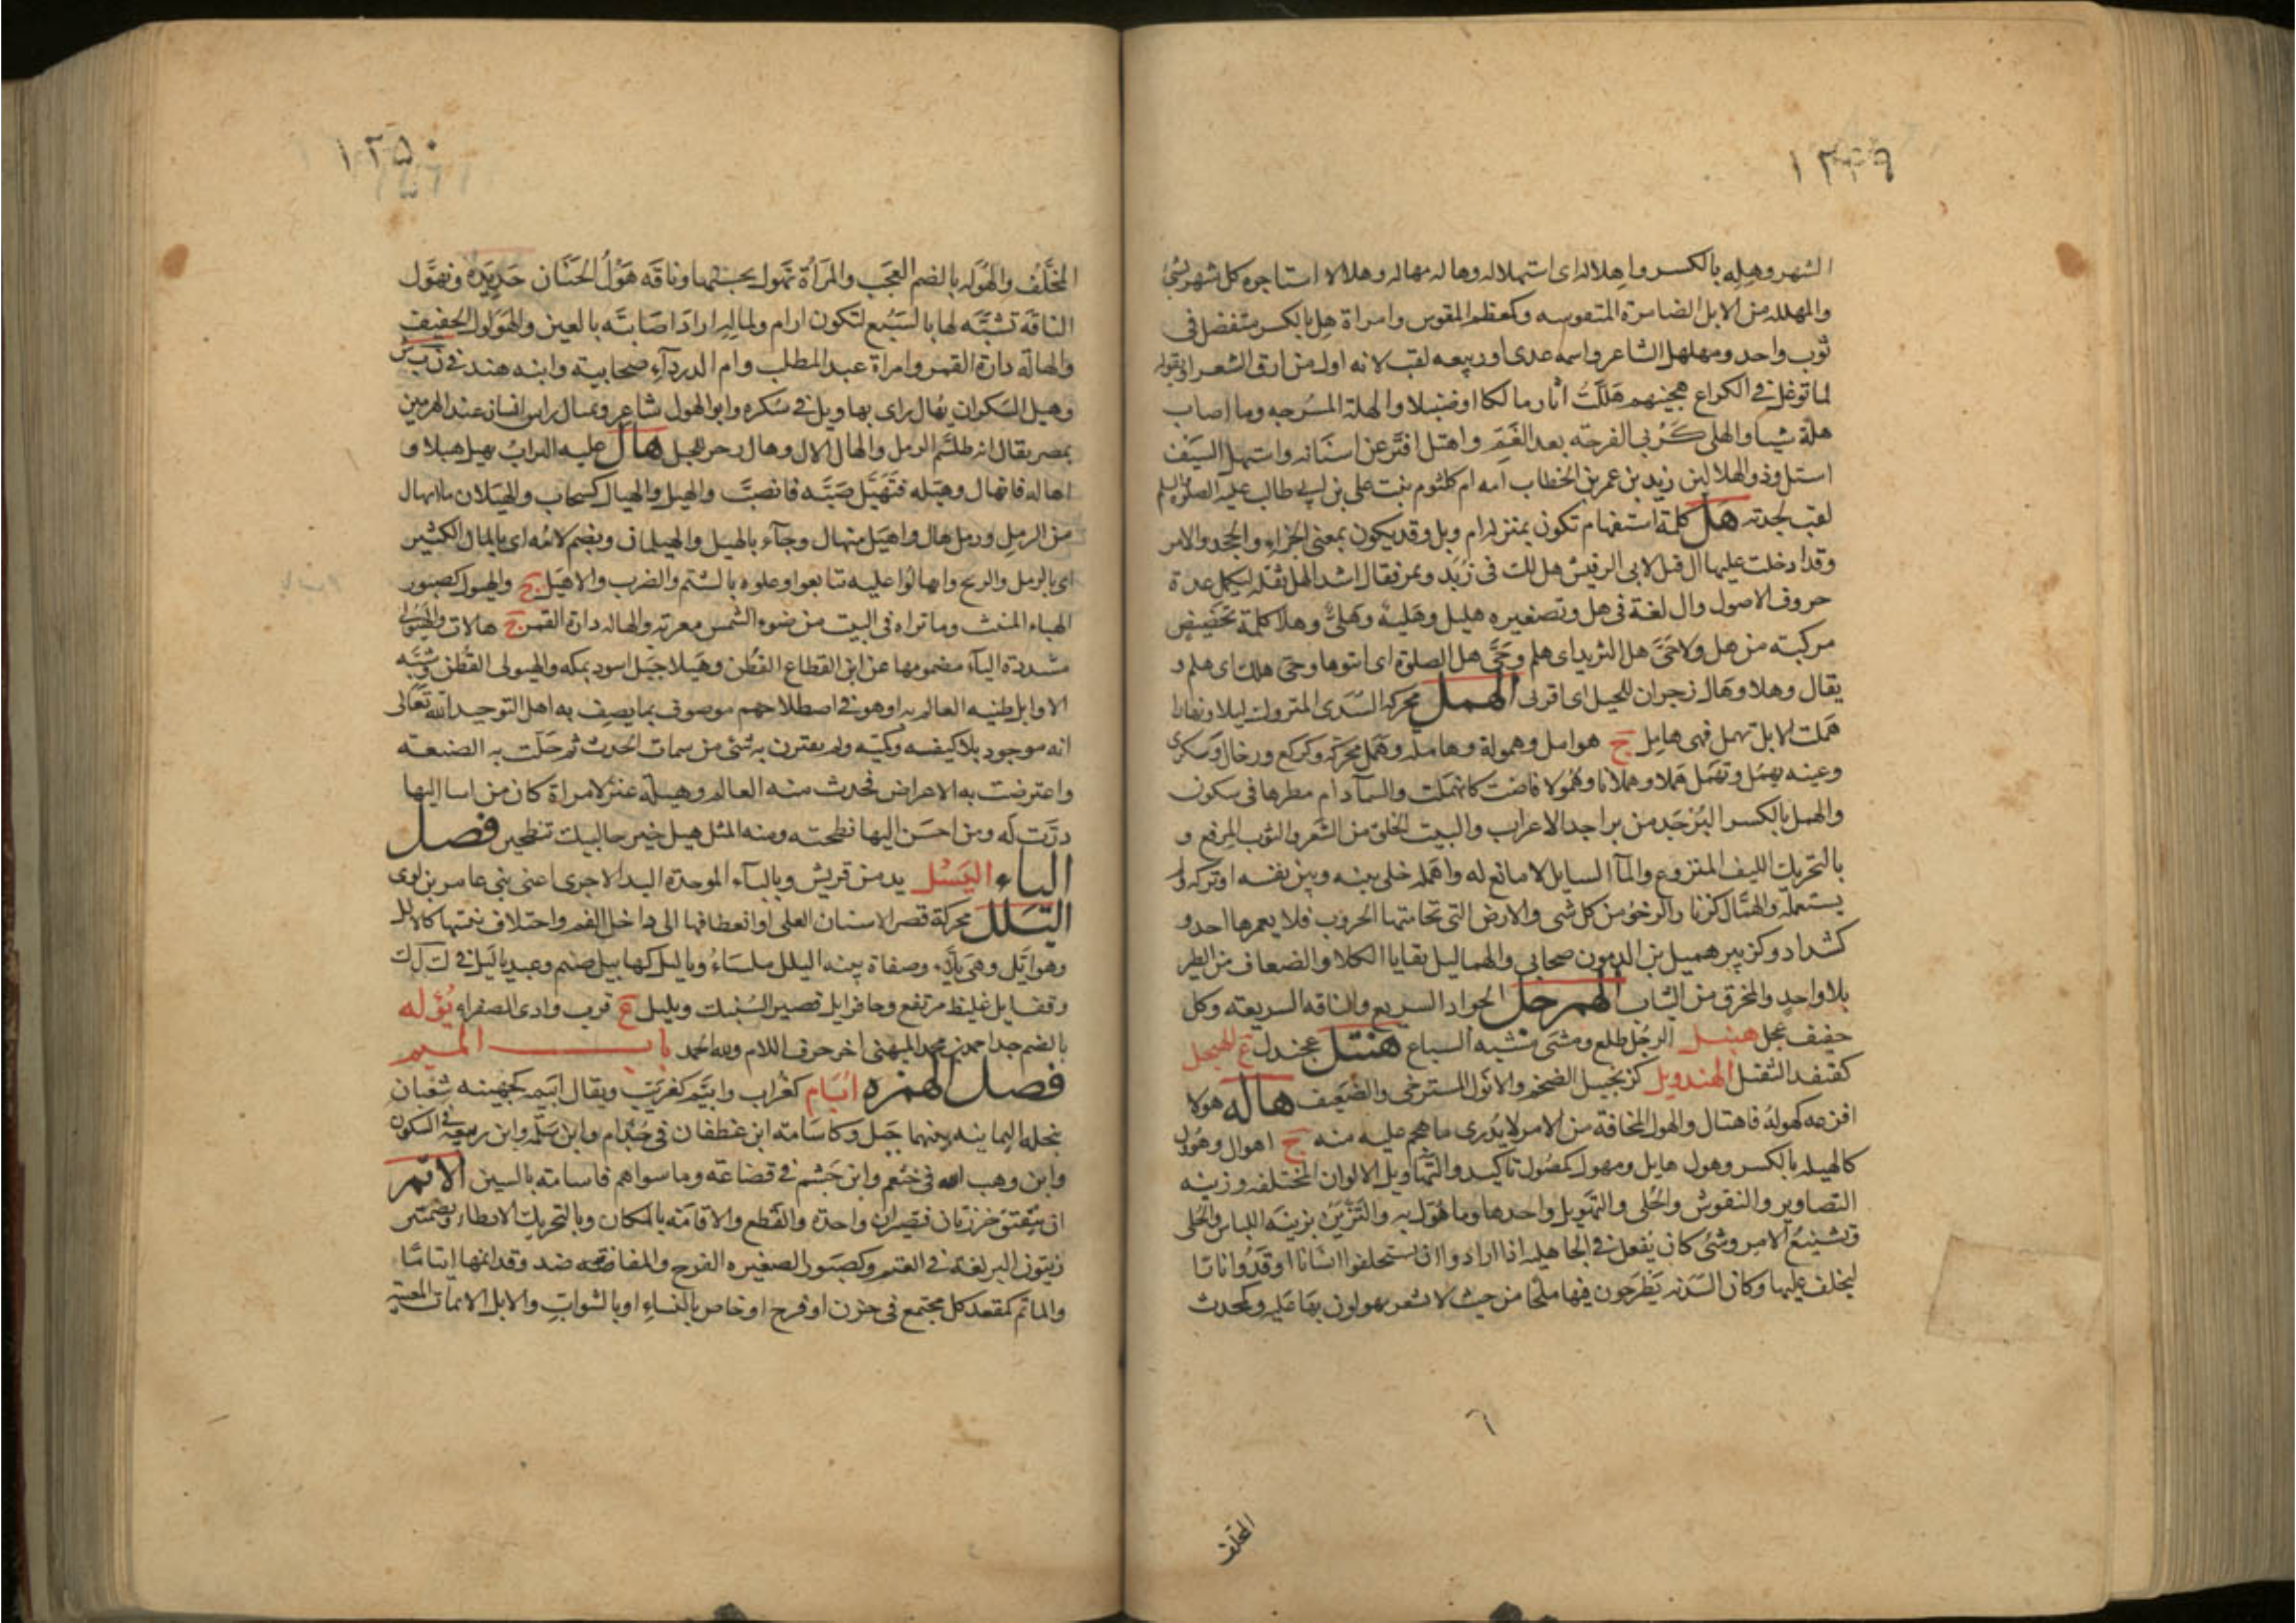 ١٢٤٩
الشهر وهله بالكسر واهلاله اى استهلاله وهاله مهالة وهلالا استاجره كل شهر بشئ
والمهللة من الابل الضامرة المتقوسه وكمعظم المقوس وامراة هل بالكسر متفضل فى
ثوب واحد ومهلهل الشاعر واسمه عدى او ربيعه لقب لانه اول من ارق الشعر او بقوله
لما توغل فى الكراع هجينهم هلهلت أثار مالكا او صنبلا والهلة المسرجه وما اصاب
هلة شيا والهلى كربى الفرجه بعد الغم واهتل افتر عن اسنانه واستهل السيف
استل وذو الهلالين زيد بن عمر بن الخطاب امه ام كلثوم بنت على بن ابى طالب عليه
لقب بجدته هل كلمة استفهام تكون بمنزلة ام وبل وقد يكون بمعنى الجزاء والجحد والامر
وقد ادخلت عليها ال قيل لابى الرقيش هل لك فى زبد وتمر فقال اشد الهل ثقله ليكمل عدة
حروف الاصول وال لغة فى هل وتصغيره هليل وهلية وهلى وهلا كلمة تحضيض
مركبته من هل ولا حى هل الثريد اى هلم وحى هل الصلوة اى ائتوها وحى هلك اى هلم و
يقال وهلا وهال زجران للخيل اى اقربى الهمل محركة السدى المتروك ليلا ونهارا
همت الابل تهمل فهى هامل ج هوامل وهمولة وهاملة وهمل محركة وكركع ورخال وسكرى
وعينه يهمل وتهمل هملا وهملانا وهمولا فاضت كانهملت والسما دام مطرها فى سكون
والهمل بالكسر البرجد من براجد الاعراب والبيت الخلق من الشعر والثوب المرقع و
بالتحريك الليف المنزوع والما السايل لا مانع له واهمله خلى بينه وبين نفسه او تركه ولم
يستعمله والهمال كزنار الرخو من كل شى والارض التى تحامتها الحروب فلا يعمرها احد و
كشداد وكزبير هميل بن الدمون صحابى والهماليل بقايا الكلا والضعاف من الطير
بلا واحد والمخرق من الثياب الهمرجل الجواد السريع والناقه السريعه وكل
خفيف عجل هنبل الرجل طلع ومشى مشيه السباع هنتل عجندل ع الهنجل
كقنفد الثقيل الهندويل كزنجبيل الضخم والانول المسترخى والضعيف هاله هولا
افزعه كهوله فاهتال والهول المخافة من الامر لا يدرى ما هجم عليه منه ج اهوال وهؤول
كالهيلة بالكسر وهول هايل ومهول كمصول تاكيد والتهاويل الالوان المختلفه وزينه
التصاوير والنقوش والحلى والتهويل واحدها وما هول به والتزين بزينه اللباس والحلى
وتشنيع الامر وشى كان يفعل فى الجاهليه اذا ارادوا ان يستحلفوا انسانا اوقدوا نارا
ليحلف عليها وكان السدنه يطرحون فيها ملحا من حيث لا يشعر يهولون بها عليه وكمحدث
المحلف
١٢٥٠
المحلف والهوله بالضم العجب والمرأة تهول بحسنها وناقه هول الجنان حديدة وتهول
الناقه تشبه لها بالسبع لتكون ارام ولماله اراد اصابته بالعين والهولول الخفيف
والهالة دارة القمر وامراة عبد المطلب وام الدرداء صحابية وابنه هند فى ن ب ش
وهيل السكران يهال راى تهاويل فى سكره وابو الهول شاعر وتمثال راس انسان عند الهرمين
بمصر يقال انه طلسم الرمل والهال الال وهال زجر للخيل هال عليه التراب يهيل هيلا و
اهاله فانهال وهيله فتهيل صبه فانصب والهيل والهيال كسحاب والهيلان ما انهال
من الرمل ورمل هال واهيل منهال وجاء بالهيل والهيلمان وبضم لامه اى بالمال الكثير
اى بالرمل والريح وانهالوا عليه تتابعوا وعلوه بالشتم والضرب والاهيل ج والهيول كصبور
الهباء المنبث وما تراه فى البيت من ضوء الشمس معربه والهاله دارة القمر ج هالات والهيولى
مشددة الياء مضمومها عن ابن القطاع القطن وهيلا جبل اسود بمكه والهيولى القطن وشبه
الاوايل طينه العالم به او هو فى اصطلاحهم موصوف بما يصف به اهل التوحيد الله تعالى
انه موجود بلا كيفيه وكميه ولم يقترن به شى من سمات الحدث ثم حلت به الصنعة
واعترضت به الاعراض فحدث منه العالم وهيلة عنز لامراة كان من اسا اليها
درت له ومن احسن اليها نطحته ومنه المثل هيل خير حاليك تنطحين فصل
الياء اليسل يد من قريش وبالباء الموحدة اليد الاخرى اعنى بنى عامر بن لوى
اليلل محركة قصر الاسنان العلى او انعطافها الى داخل الفم واختلاف نبتتها كالالل
وهو ايل وهى يلاء وصفاة بينه اليلل ملساء وياليل كهابيل صنم وعبد ياليل فى ك ل ل
وقف ايل غليظ مرتفع وحافر ايل قصير السنبك ويليل ع قرب وادى الصفراء يؤله
بالضم جد احمد بن محمد الميهنى اخر حرف اللام ولله الحمد باب الميم
فصل الهمزه ابام كغراب وابيم كغريب ويقال ابيمه كجهينه شعبان
بنخلة اليمانيه بينهما جبل وكاسامه ابن غطفان فى جذام وابن سلمه وابن ربيعه فى السكون
وابن وهب الله فى خثعم وابن جشم فى قضاعة وما سواهم فاسامه بالسين الاتم
ان يتفتق خرزتان فتصيران واحدة والقطع والاقامة بالمكان وبالتحريك الابطاء وبضمتين
زيتون البر لغة فى العتم وكصبور الصغيره الفرج والمفاضه ضد وقد اتمها ايتاما
والماتم كمقعد كل مجتمع فى حزن او فرح او خاص بالنساء او بالشواب والابل الاتمات المعيية